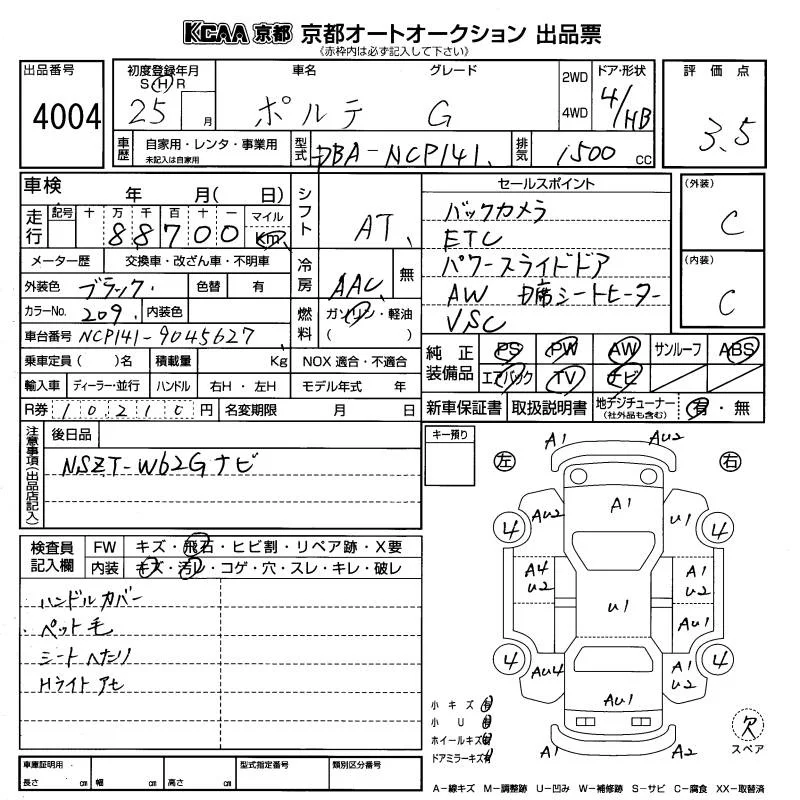 KCAA 京都 京都オートオークション 出品票
《赤枠内は必ず記入して下さい》
出品番号
4004
初度登録年月
S H R
25 月
車名
ポルテ
グレード
G
2WD
4WD
ドア・形状
4/HB
評価点
3.5
車歴
自家用・レンタ・事業用
未記入は自家用
型式
DBA-NCP141
排気
1500 CC
車検 年 月( 日)
走行
記号 十 万 千 百 十 一 マイル
8 8 7 0 0 km
メーター歴 交換車・改ざん車・不明車
外装色 ブラック 色替 有
カラーNo. 209 内装色
車台番号 NCP141-9045627
乗車定員 ( )名 積載量 Kg
輸入車 ディーラー・並行 ハンドル 右H・左H
R券 10210 円 名変期限 月 日
シフト
AT
冷房
AAC 無
燃料
ガソリン・軽油
( )
NOX 適合・不適合
モデル年式 年
セールスポイント
バックカメラ
ETC
パワースライドドア
AW D席シートヒーター
VSC
(外装)
C
(内装)
C
純正装備品
PS PW AW サンルーフ ABS
エアバック TV ナビ
新車保証書 取扱説明書 地デジチューナー(社外品も含む) 有・無
注意事項(出品店記入)
後日品
NSZT-W62Gナビ
キー預り
検査員記入欄
FW キズ・飛石・ヒビ割・リペア跡・X要
内装 キズ・汚レ・コゲ・穴・スレ・キレ・破レ
ハンドルカバー
ペット毛
シートへたり
Hライトアセ
左
右
A1
AU2
A1
AU2
U1
4
4
A4
U2
A1
U2
U1
AU1
4
4
AU4
A1
U2
AU1
A1
A2
小キズ 有
小U 有
ホイールキズ 有
ドアミラーキズ 有
欠
スペア
車庫証明用
長さ cm 幅 cm 高さ cm
型式指定番号
類別区分番号
A-線キズ M-調整跡 U-凹み W-補修跡 S-サビ C-腐食 XX-取替済